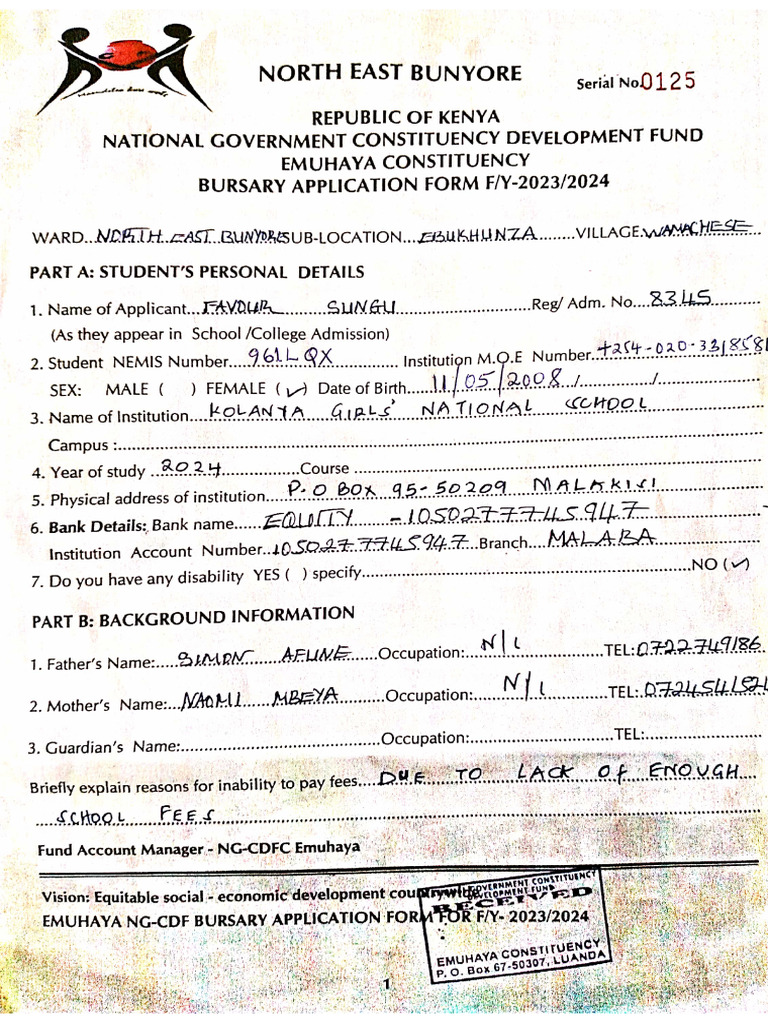 NORTH EAST BUNYORE
Serial No.0125
REPUBLIC OF KENYA
NATIONAL GOVERNMENT CONSTITUENCY DEVELOPMENT FUND
EMUHAYA CONSTITUENCY
BURSARY APPLICATION FORM F/Y-2023/2024
WARD...NORTH EAST BUNYORE SUB-LOCATION...EBUKHUNZA........VILLAGE.WAMACHESE
PART A: STUDENT'S PERSONAL DETAILS
1. Name of Applicant...FAVOUR SUNGU...Reg/ Adm. No...8345
(As they appear in School /College Admission)
2. Student NEMIS Number...961LQX...Institution M.O.E Number.+254-020-331858
SEX: MALE ( ) FEMALE (✓) Date of Birth...11/05/2008.../.../...
3. Name of Institution...KOLANYA GIRLS' NATIONAL SCHOOL
Campus :...
4. Year of study...2024...Course...
5. Physical address of institution...P.O BOX 95-50209 MALAKISI
6. Bank Details: Bank name...EQUITY -1050277745947
Institution Account Number...1050277745947 Branch...MALABA
7. Do you have any disability YES ( ) specify...NO (✓)
PART B: BACKGROUND INFORMATION
1. Father's Name:...SIMON AFUNE...Occupation:...N/L...TEL:0722749186
2. Mother's Name:...NAOMI MBEYA...Occupation:...N/L...TEL:.072454152
3. Guardian's Name:...Occupation:...TEL:...
Briefly explain reasons for inability to pay fees...DUE TO LACK OF ENOUGH
SCHOOL FEES
Fund Account Manager - NG-CDFC Emuhaya
Vision: Equitable social - economic development countrywide
EMUHAYA NG-CDF BURSARY APPLICATION FORM FOR F/Y- 2023/2024
GOVERNMENT CONSTITUENCY
DEVELOPMENT FUND
RECEIVED
EMUHAYA CONSTITUENCY
P. O. Box 67-50307, LUANDA
1